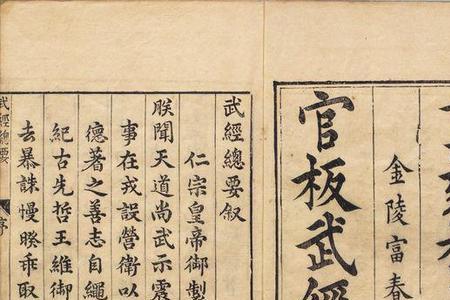 金陵富春
官板武經
武經總要叙
仁宗皇帝御製
朕聞天道尚武示震
事在戎設營衛以
德者之善志自繩
紀古先哲王維御
去暴誅慢暌乖取
武經總要
序